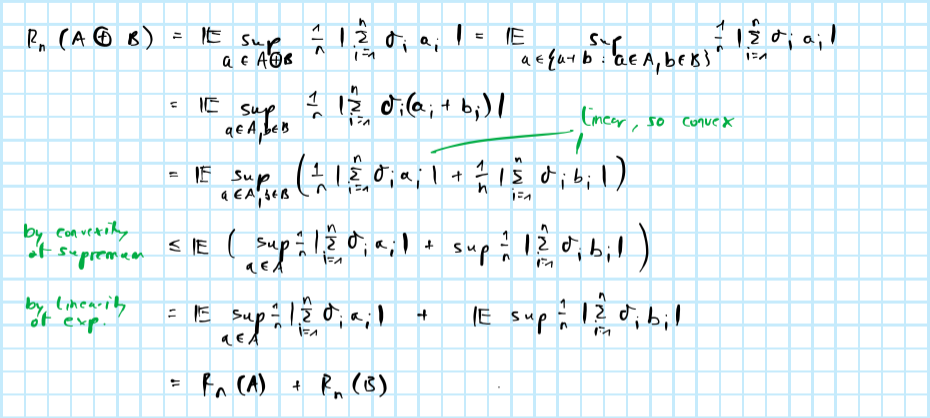 R_n (A ⊕ B) = IE sup_{a ∈ A⊕B} 1/n |∑_{i=1}^n σ_i a_i| = IE sup_{a ∈ {a+b : a∈A, b∈B}} 1/n |∑_{i=1}^n σ_i a_i|
= IE sup_{a∈A, b∈B} 1/n |∑_{i=1}^n σ_i (a_i + b_i)|
linear, so convex
= IE sup_{a∈A, b∈B} (1/n |∑_{i=1}^n σ_i a_i| + 1/n |∑_{i=1}^n σ_i b_i|)
by convexity
of supremum
≤ IE ( sup_{a∈A} 1/n |∑_{i=1}^n σ_i a_i| + sup 1/n |∑_{i=1}^n σ_i b_i| )
by linearity
of exp.
= IE sup_{a∈A} 1/n |∑_{i=1}^n σ_i a_i| + IE sup 1/n |∑_{i=1}^n σ_i b_i|
= R_n (A) + R_n (B)